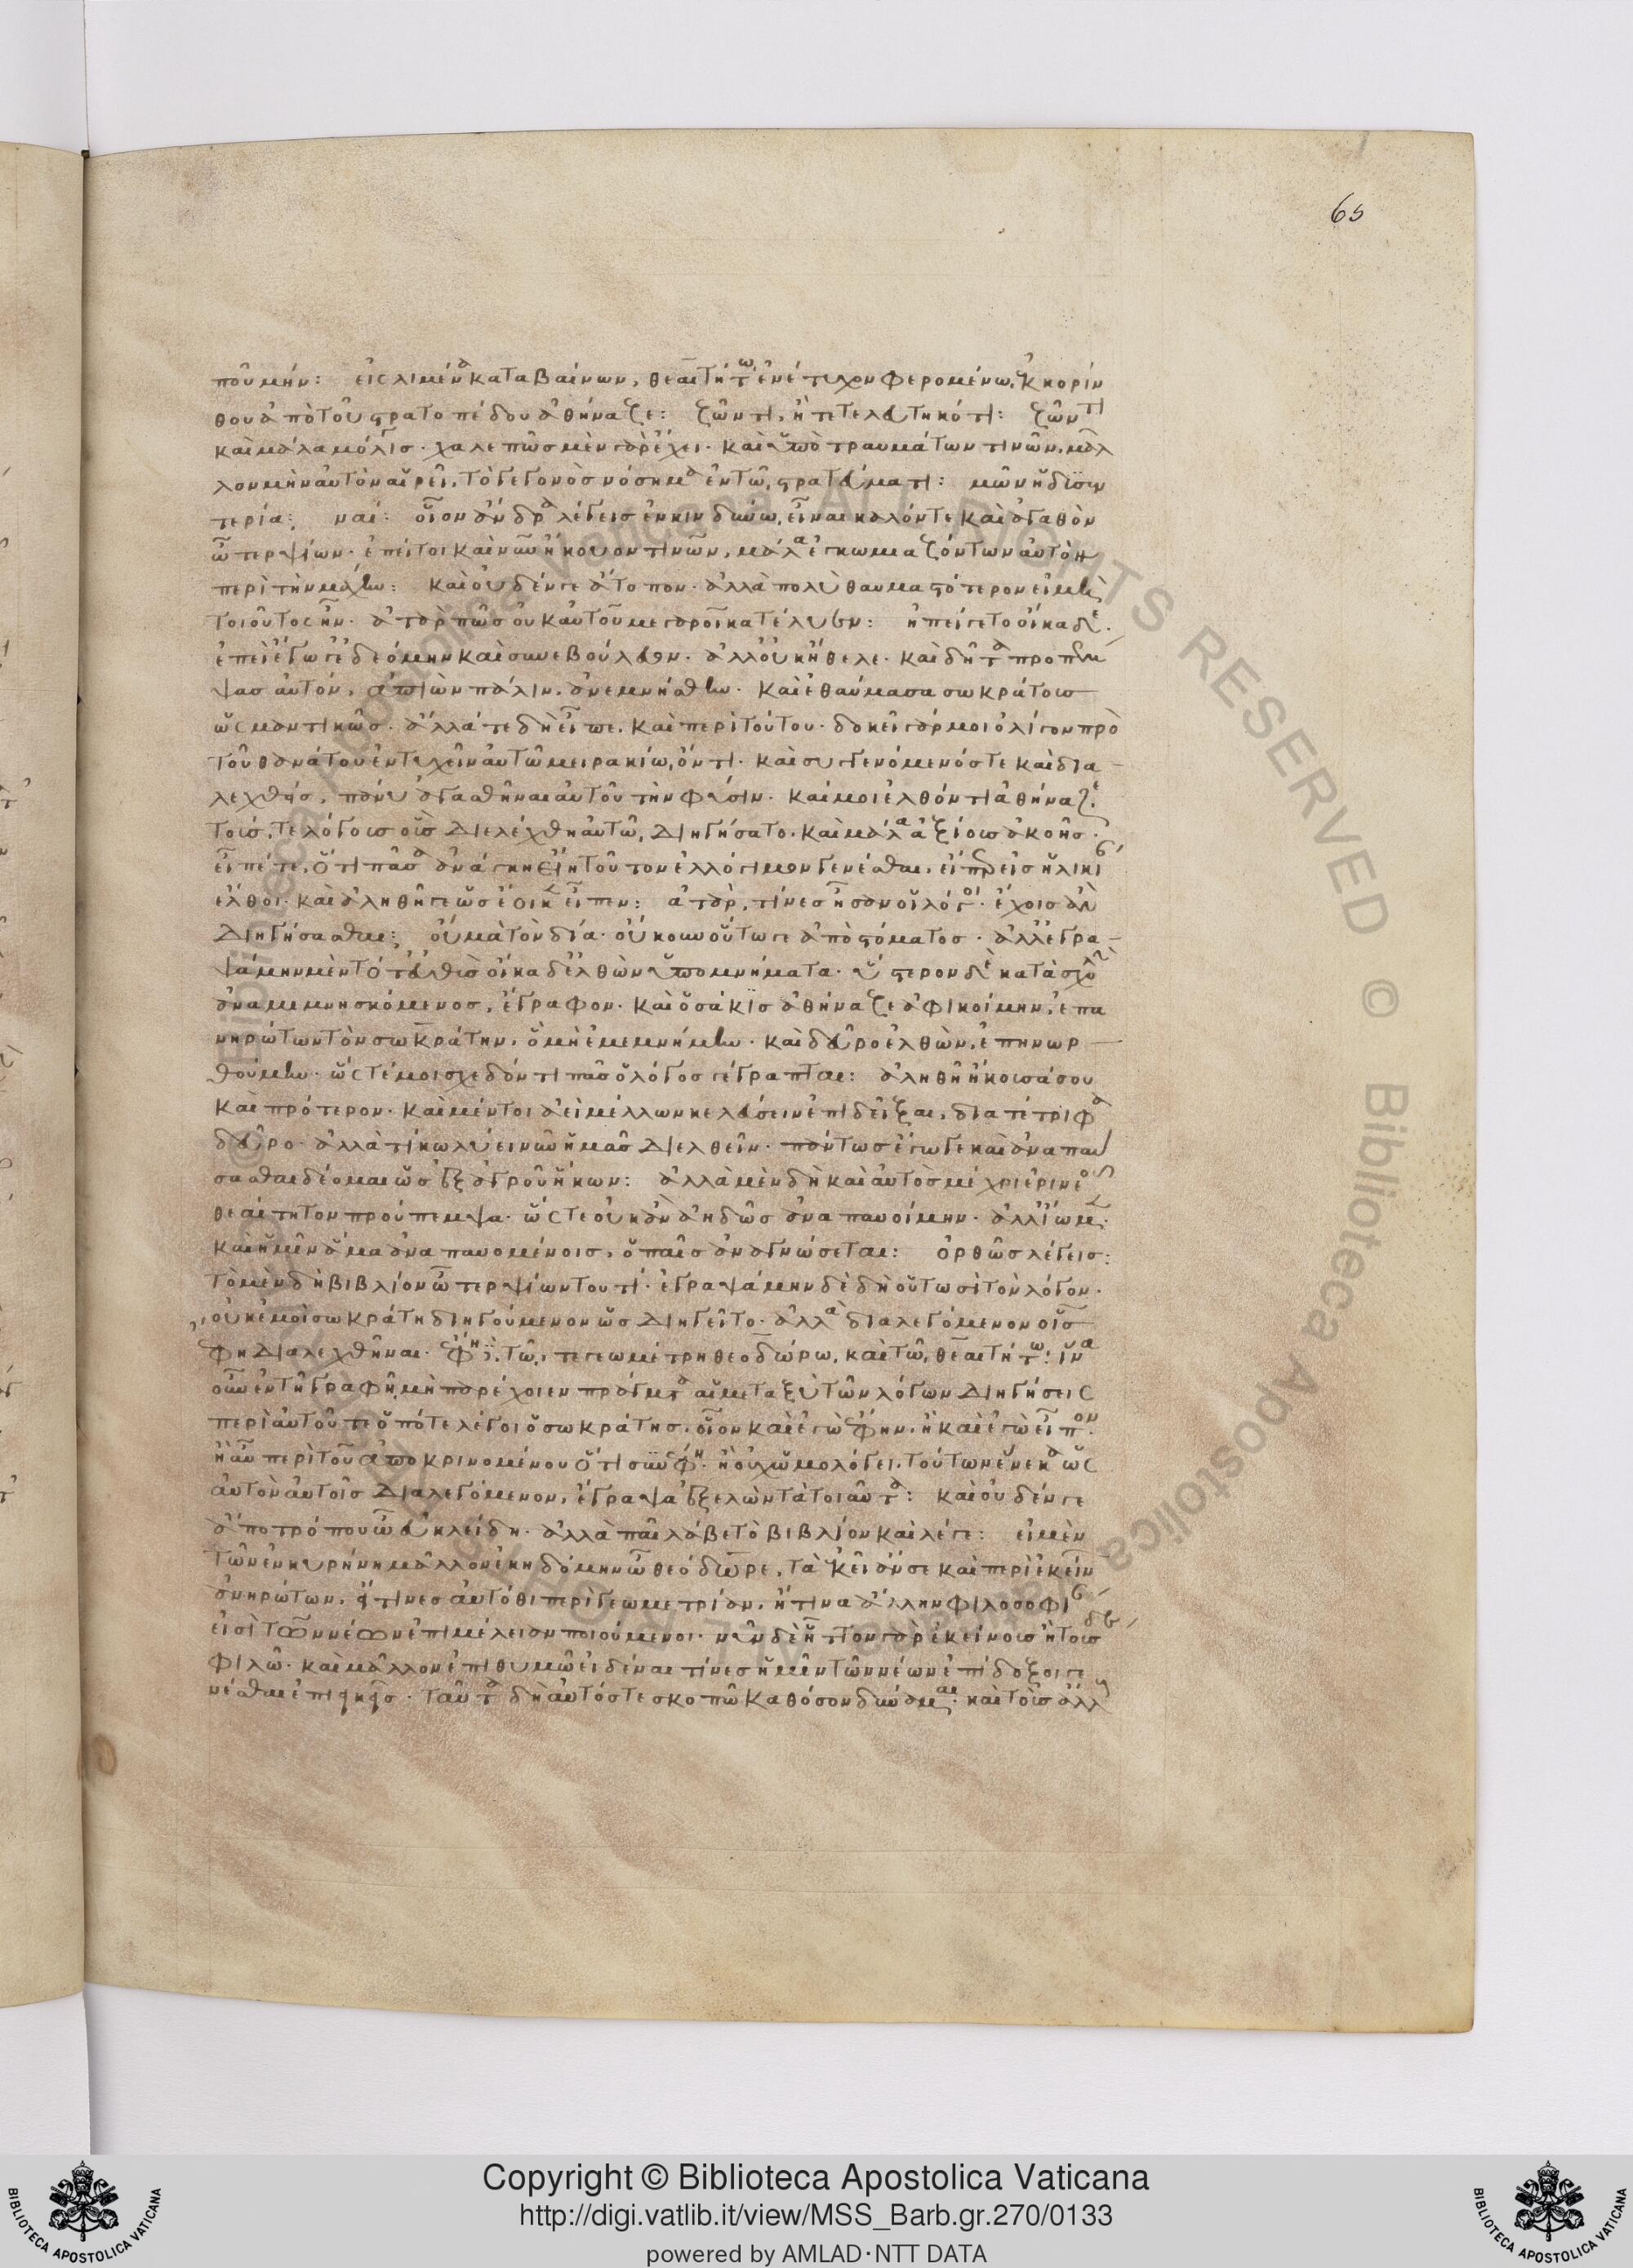 65
ποῦ μήν: εἰς λιμένα καταβαίνων, θεαιτήτω ἐνέτυχον φερομένω, ἐκ κορίν
θου ἀπὸ τοῦ στρατοπέδου ἀθήναζε: ζῶντι, ἢ τετελευτηκότι: ζῶντι
καὶ μάλα μόλις· χαλεπῶς μὲν γὰρ ἔχει· καὶ ὑπὸ τραυμάτων τινῶν, μᾶλ
λον μὴν αὐτὸν αἱρεῖ, τὸ γεγονὸς νόσημα ἐν τῶ, στρατεύματι: μῶν ἡ δυσεν
τερία; ναί: οἷον ἄνδρα λέγεις ἐν κινδύνω, εἶναι· καλόν τε καὶ ἀγαθὸν
ὦ τερψίων· ἐπεί τοι καὶ νῦν ἤκουόν τινων, μάλα ἐγκωμιαζόντων αὐτὸν
περὶ τὴν μάχην: καὶ οὐδέν γε ἄτοπον· ἀλλὰ πολὺ θαυμαστότερον εἰ μὴ
τοιοῦτος ἦν· ἀτὰρ πῶς οὐκ αὐτοῦ μεγαροῖ κατέλυεν: ἠπείγετο οἴκαδε·
ἐπεὶ ἔγωγ' ἐδεόμην καὶ συνεβούλευον· ἀλλ' οὐκ ἤθελε· καὶ δῆτα προπέμ
ψας αὐτόν, ἀπιὼν πάλιν, ἀνεμνήσθην· καὶ ἐθαύμασα σωκράτους
ὡς μαντικῶς· ἄλλά τε δὴ εἶπε, καὶ περὶ τούτου· δοκεῖ γάρ μοι ὀλίγον πρὸ
τοῦ θανάτου ἐντυχεῖν αὐτῶ μειρακίω, ὄντι· καὶ συγγενόμενός τε καὶ δια
λεχθείς, πάνυ ἀγασθῆναι αὐτοῦ τὴν φύσιν· καί μοι ἐλθόντι ἀθήναζε
τούς, τε λόγους οὓς διελέχθη αὐτῶ, διηγήσατο· καὶ μάλα ἀξίους ἀκοῆς·
εἶπέ τε, ὅτι πᾶσα ἀνάγκη εἴη τοῦτον ἐλλόγιμον γενέσθαι, εἴπερ εἰς ἡλικίαν
ἔλθοι· καὶ ἀληθῆ γε ὡς ἔοικεν εἶπεν: ἀτὰρ, τίνες ἦσαν οἱ λόγοι· ἔχοις ἂν
διηγήσασθαι; οὐ μὰ τὸν δία· οὔκουν οὕτω γε ἀπὸ στόματος· ἀλλ' ἐγρα
ψάμην μὲν τότ' εὐθὺς οἴκαδ' ἐλθὼν ὑπομνήματα· ὕστερον δὲ κατὰ σχολὴν
ἀναμιμνησκόμενος, ἔγραφον· καὶ ὁσάκις ἀθήναζε ἀφικοίμην, ἐπα
νηρώτων τὸν σωκράτην, ὃ μὴ ἐμεμνήμην· καὶ δεῦρο ἐλθὼν, ἐπηνωρ
θούμην· ὥστέ μοι σχεδόν τι πᾶς ὁ λόγος γέγραπται: ἀληθῆ ἤκουσά σου
καὶ πρότερον· καὶ μέντοι ἀεὶ μέλλων κελεύσειν ἐπιδεῖξαι, διατέτριφα
δεῦρο· ἀλλὰ τί κωλύει νῦν ἡμᾶς διελθεῖν· πάντως ἔγωγε καὶ ἀναπαύ
σασθαι δέομαι ὡς ἐξ ἀγροῦ ἥκων: ἀλλὰ μὲν δὴ καὶ αὐτὸς μέχρι ἐρινεοῦ
θεαίτητον προύπεμψα· ὥστε οὐκ ἂν ἀηδῶς ἀναπαυοίμην· ἀλλ' ἴωμεν·
καὶ ἡμῖν ἅμα ἀναπαυομένοις, ὁ παῖς ἀναγνώσεται: ὀρθῶς λέγεις:
τὸ μὲν δὴ βιβλίον ὦ τερψίων τουτί· ἐγραψάμην δὲ δὴ οὑτωσὶ τὸν λόγον·
οὐκ ἐμοὶ σωκράτη διηγούμενον ὡς διηγεῖτο· ἀλλὰ διαλεγόμενον οἷς
φη διαλεχθῆναι· ἔφη δὲ, τῶ, τε γεωμέτρη θεοδώρω, καὶ τῶ, θεαιτήτω· ἵνα
οὖν ἐν τῆ γραφῆ, μὴ παρέχοιεν πράγματα αἱ μεταξὺ τῶν λόγων διηγήσεις
περὶ αὐτοῦ τε ὁπότε λέγοι ὁ σωκράτης, οἷον καὶ ἐγὼ ἔφην, ἢ καὶ ἐγὼ εἶπον·
ἢ αὖ περὶ τοῦ ἀποκρινομένου ὅτι συνέφη· ἢ οὐχ ὡμολόγει, τούτων ἕνεκα ὡς
αὐτὸν αὐτοῖς διαλεγόμενον, ἔγραψα ἐξελὼν τὰ τοιαῦτα: καὶ οὐδέν γε
ἄπο τρόπου ὦ εὐκλείδη· ἀλλὰ παῖ λάβε τὸ βιβλίον καὶ λέγε: εἰ μὲν
τῶν ἐν κυρήνη μᾶλλον ἐκηδόμην ὦ θεόδωρε, τὰ ἐκεῖ ἄν σε καὶ περὶ ἐκείνων
ἀνηρώτων, εἴ τινες αὐτόθι περὶ γεωμετρίαν, ἤ τινα ἄλλην φιλοσοφίαν
εἰσὶ τῶν νέων ἐπιμέλειαν ποιούμενοι· νῦν δὲ ἧττον γὰρ ἐκείνους ἢ τούσδε
φιλῶ· καὶ μᾶλλον ἐπιθυμῶ εἰδέναι τίνες ἡμῖν τῶν νέων ἐπίδοξοι γε
νέσθαι ἐπιεικεῖς· ταῦτα δὴ αὐτός τε σκοπῶ καθόσον δύναμαι· καὶ τοὺς ἄλλους
Copyright © Biblioteca Apostolica Vaticana
http://digi.vatlib.it/view/MSS_Barb.gr.270/0133
powered by AMLAD·NTT DATA
BIBLIOTECA APOSTOLICA VATICANA
BIBLIOTECA APOSTOLICA VATICANA